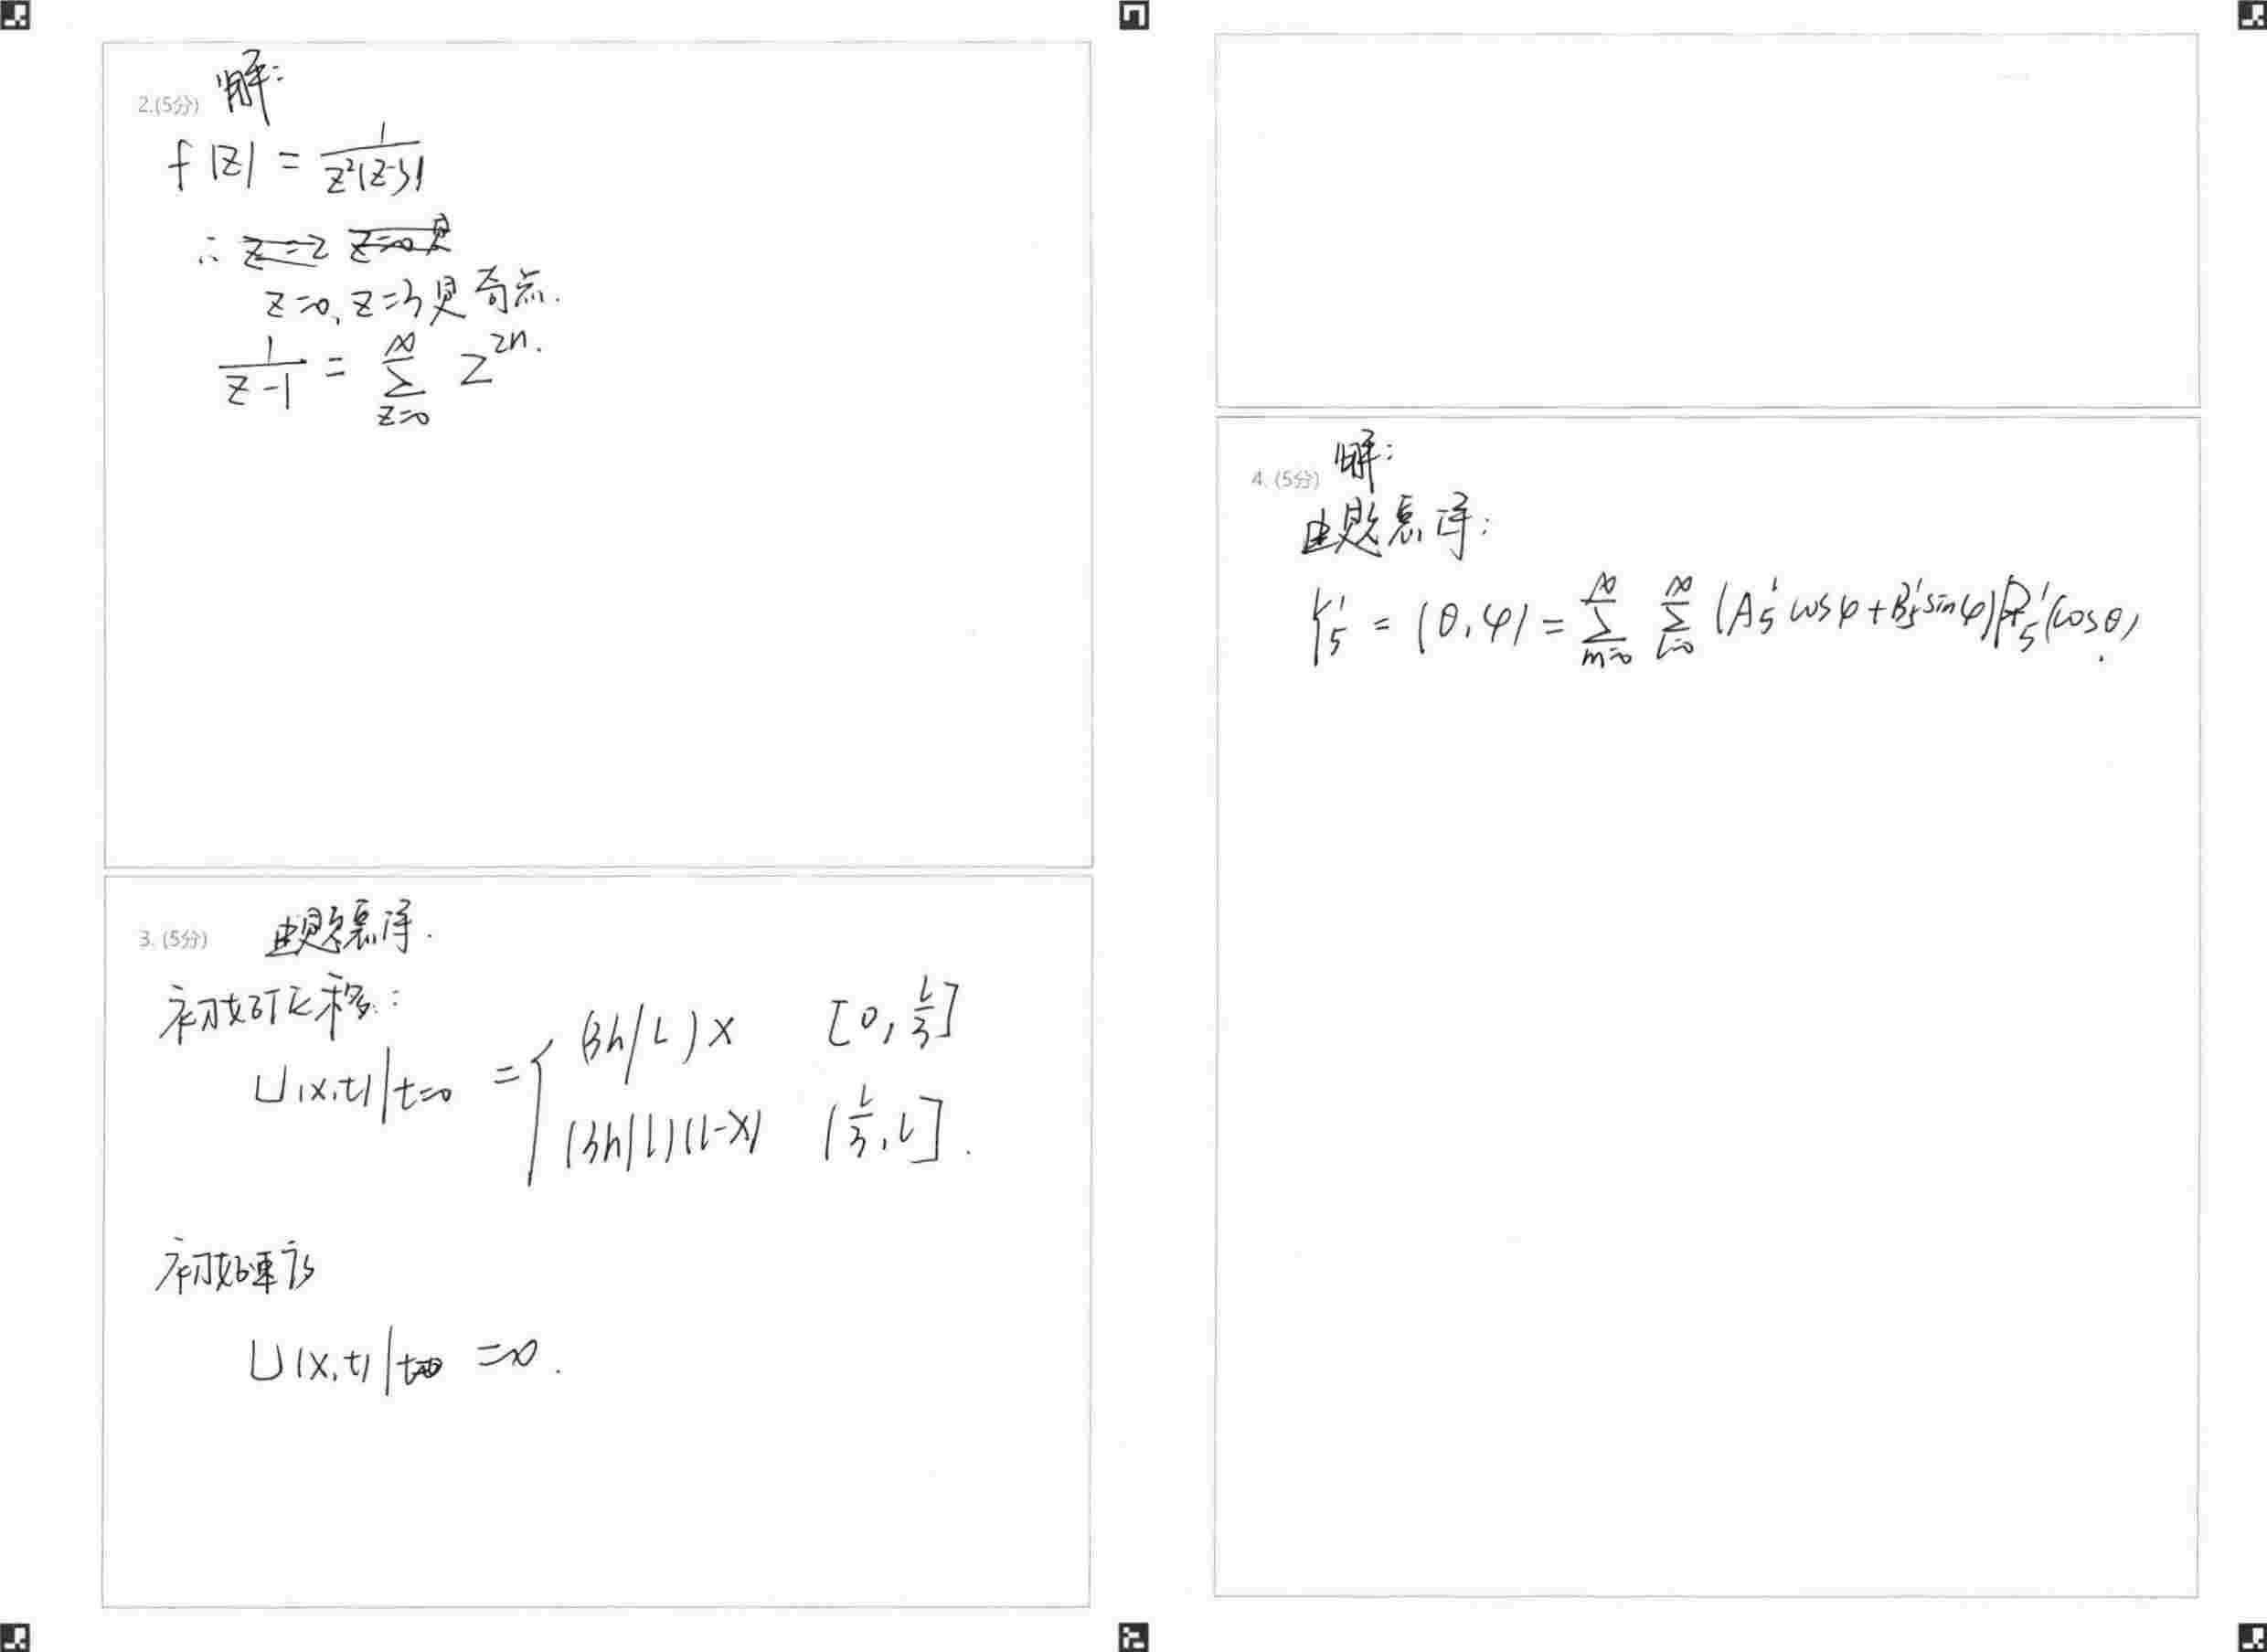 2.(5分) 解:
f(z) = 1/(z²(z-3))
∴ z=2 z=0是
z=0, z=3是奇点.
1/(z-1) = ∑_{z=0}^{∞} z^{2n}.
3. (5分) 由题意得.
初始位移:
U(x,t)|t=0 = { (3h/L)x [0, L/3]
(3h/L)(L-x) (L/3, L].
初始速度
U(x,t)|t=0 =0.
4. (5分) 解:
由题意得:
Y₅¹ = (θ,φ) = ∑_{m=0}^{∞} ∑_{l=0}^{∞} (A₅¹ cosφ + B₅¹ sinφ) P₅¹(cosθ).